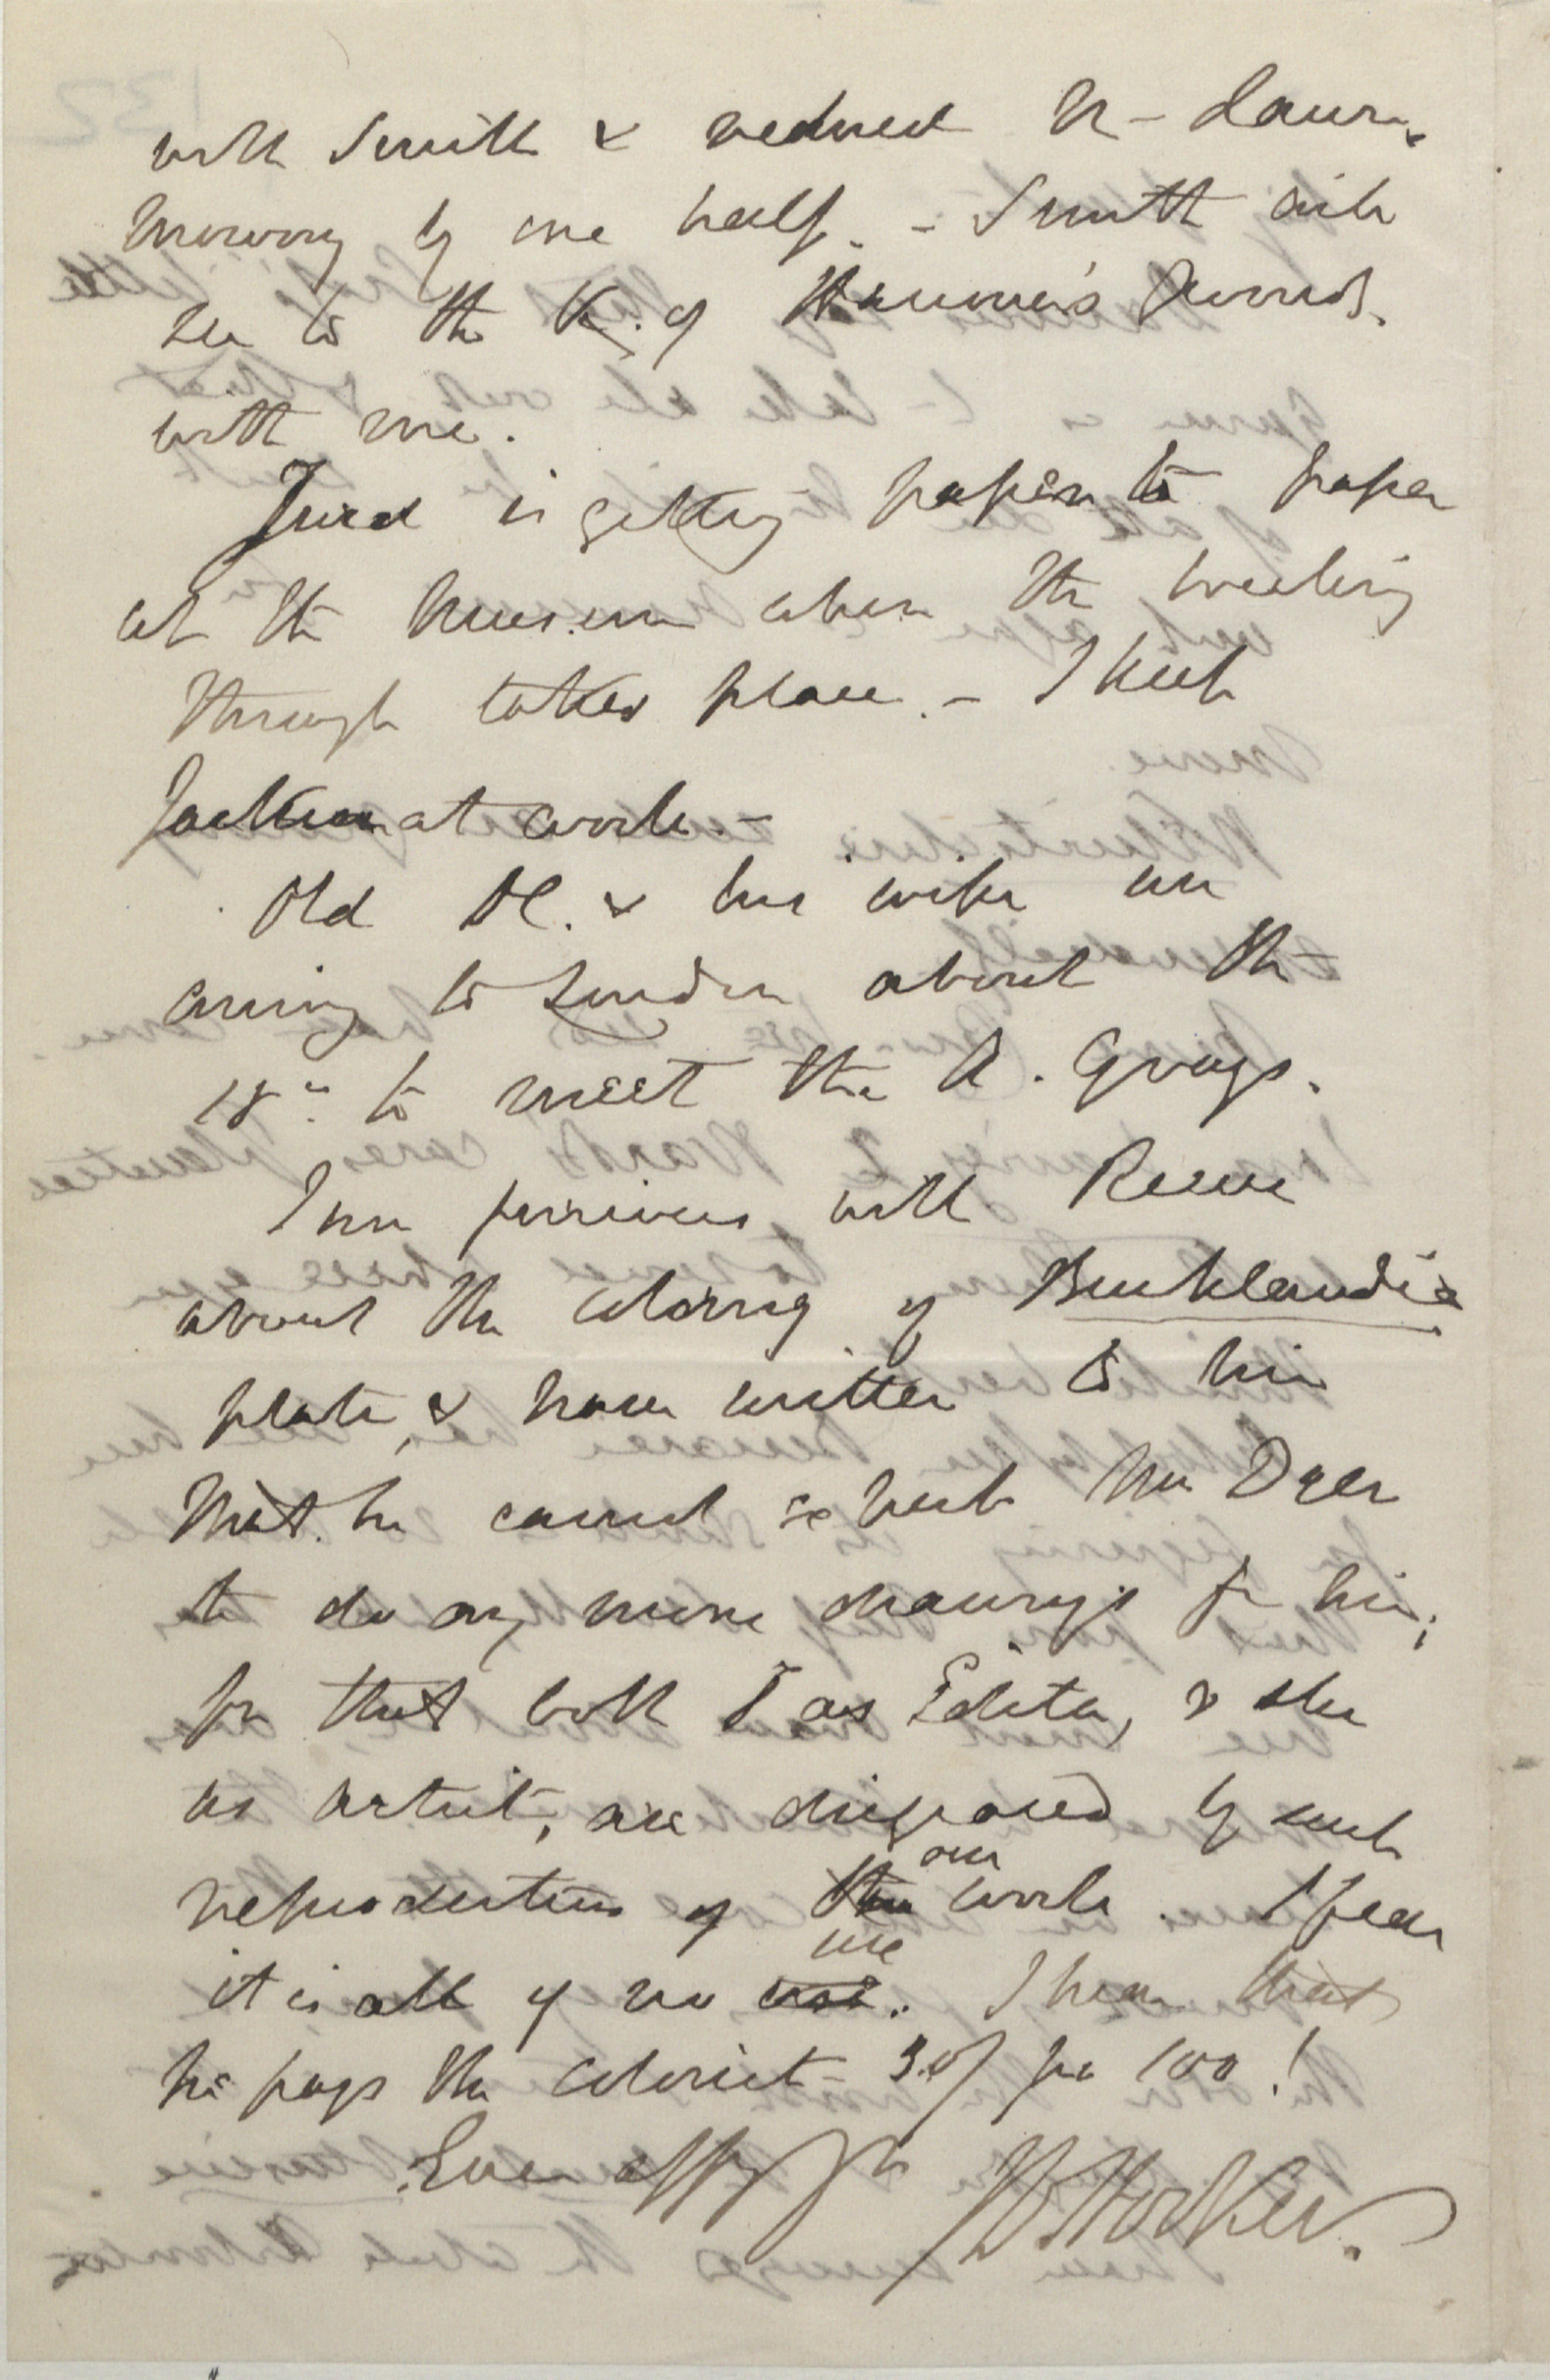 with Smith & reduced N— Lawn
Mowing by one half. — Smith will
see to the K. of Hanover's Grounds.
with me.
is getting paper to paper
at the Museum when the breaking
through takes place. — I keep
Jackson at work. —
Old H. & his wife are
coming to London about the
18th to meet the A. Grays.
I am furious with Reeve
about the coloring of Bucklandia
plate, & have written to him
that he cannot expect Mrs Dyer
to do any more drawings for him;
for that both I as Editor, & she
as artist, are disgraced by such
reproduction of our work. I fear
it is all of no use. I hear that
he pays the colorist 3/ per 100!
Ever affy yrs JD Hooker.